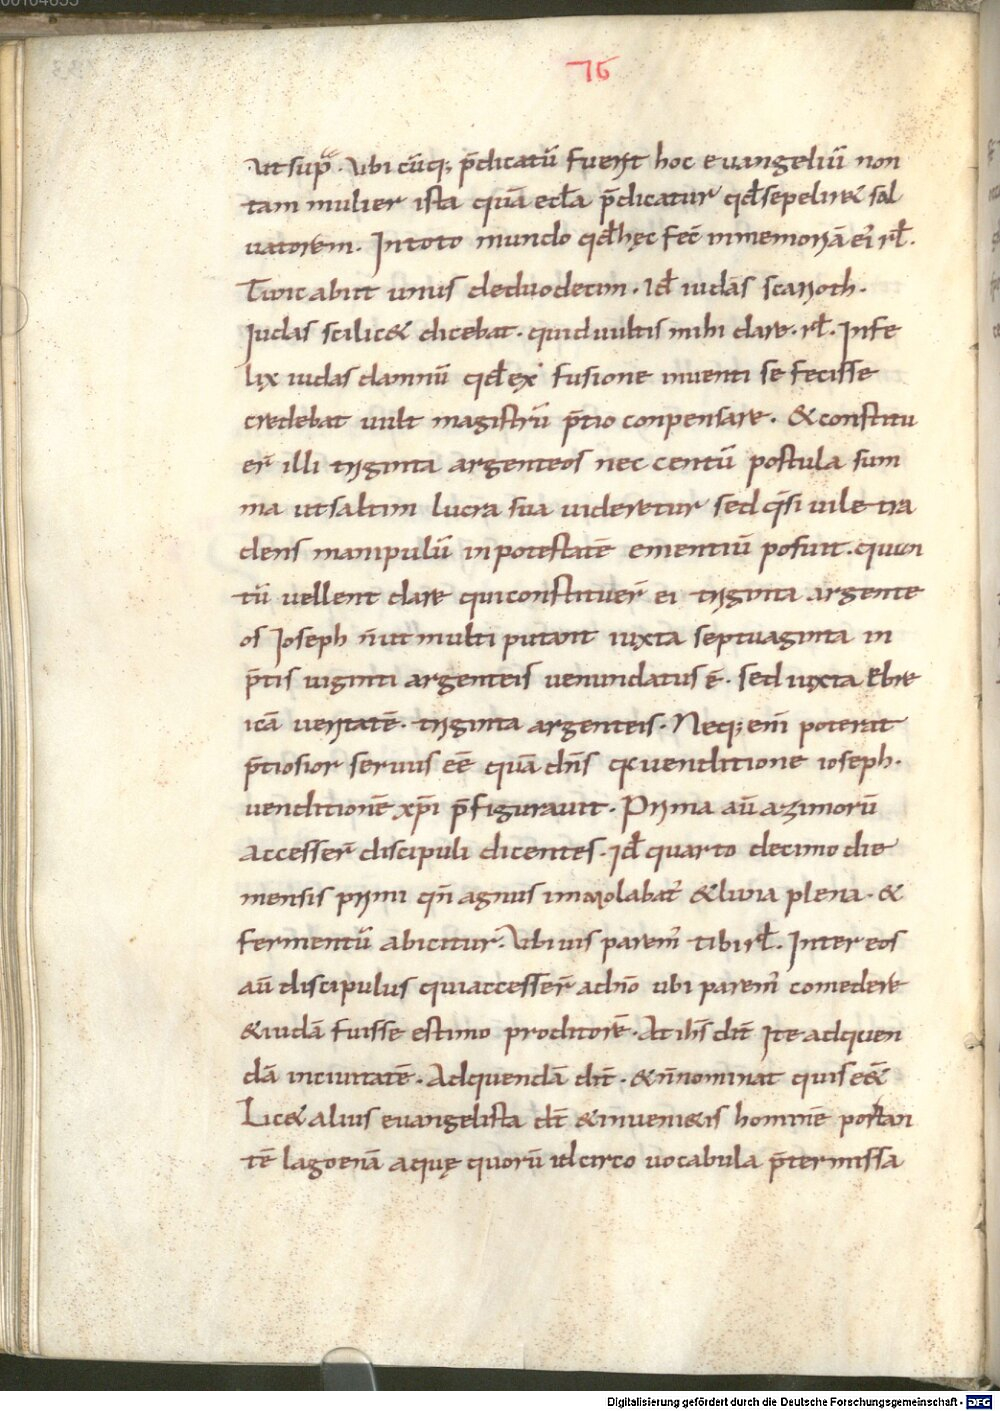 76
ut supᷓ. Ubi cūq; p̄dicatū fuerit hoc euangeliū non
tam mulier ista quā eccła p̄dicatur qd̄ sepelir& sal
uatorem. In toto mundo qd̄ hęc fec̄ in memoriā ei᾽ rł.
Tunc abiit unus de duodecim. Id̄ iudas scarioth.
Iudas scilic& dicebat. quid uultis mihi dare. rł. Infe
lix iudas damnū qd̄ ex fusione inuenti se fecisse
credebat uult magistrū p̄tio conpensare. & constitu
er̄ illi triginta argenteos nec centū postula sum
ma ut saltim lucra sua uideretur sed q̄si uile tra
dens manipulū in potestatē ementiū posuit. quan
tū uellent dare qui constituer̄ ei triginta argente
os Ioseph n̄ ut multi putant iuxta septuaginta in
p̄tis uiginti argenteis uenundatus ē. sed iuxta Ebre
icā ueritatē. triginta argenteis. Neq; eni᷒ poterat
p̄tiosior seruus eē quā dn̄s q uenditione ioseph.
uenditionē xp̄i p̄figurauit. Prima aū azimorū
accesser̄ discipuli dicentes. Id̄ quarto decimo die
mensis primi qn̄ agnus immolabat᾽ & luna plena. &
fermentū abicitur. Ubi uis parem᾽ tibi rł. Inter eos
aū discipulus qui accesser̄ ad dn̄o ubi parem᾽ comedere
& iudā fuisse estimo proditorē. At ih̄s dix̄ Ite ad quen
dā in ciuitatē. Ad quendā dix̄. & n̄ nominat quis eē&
Lic& alius euangelista dix̄ & inueni&is hominē portan
tē lagoenā aquę quorū idcirco uocabula p̄termissa
Digitalisierung gefördert durch die Deutsche Forschungsgemeinschaft - DFG